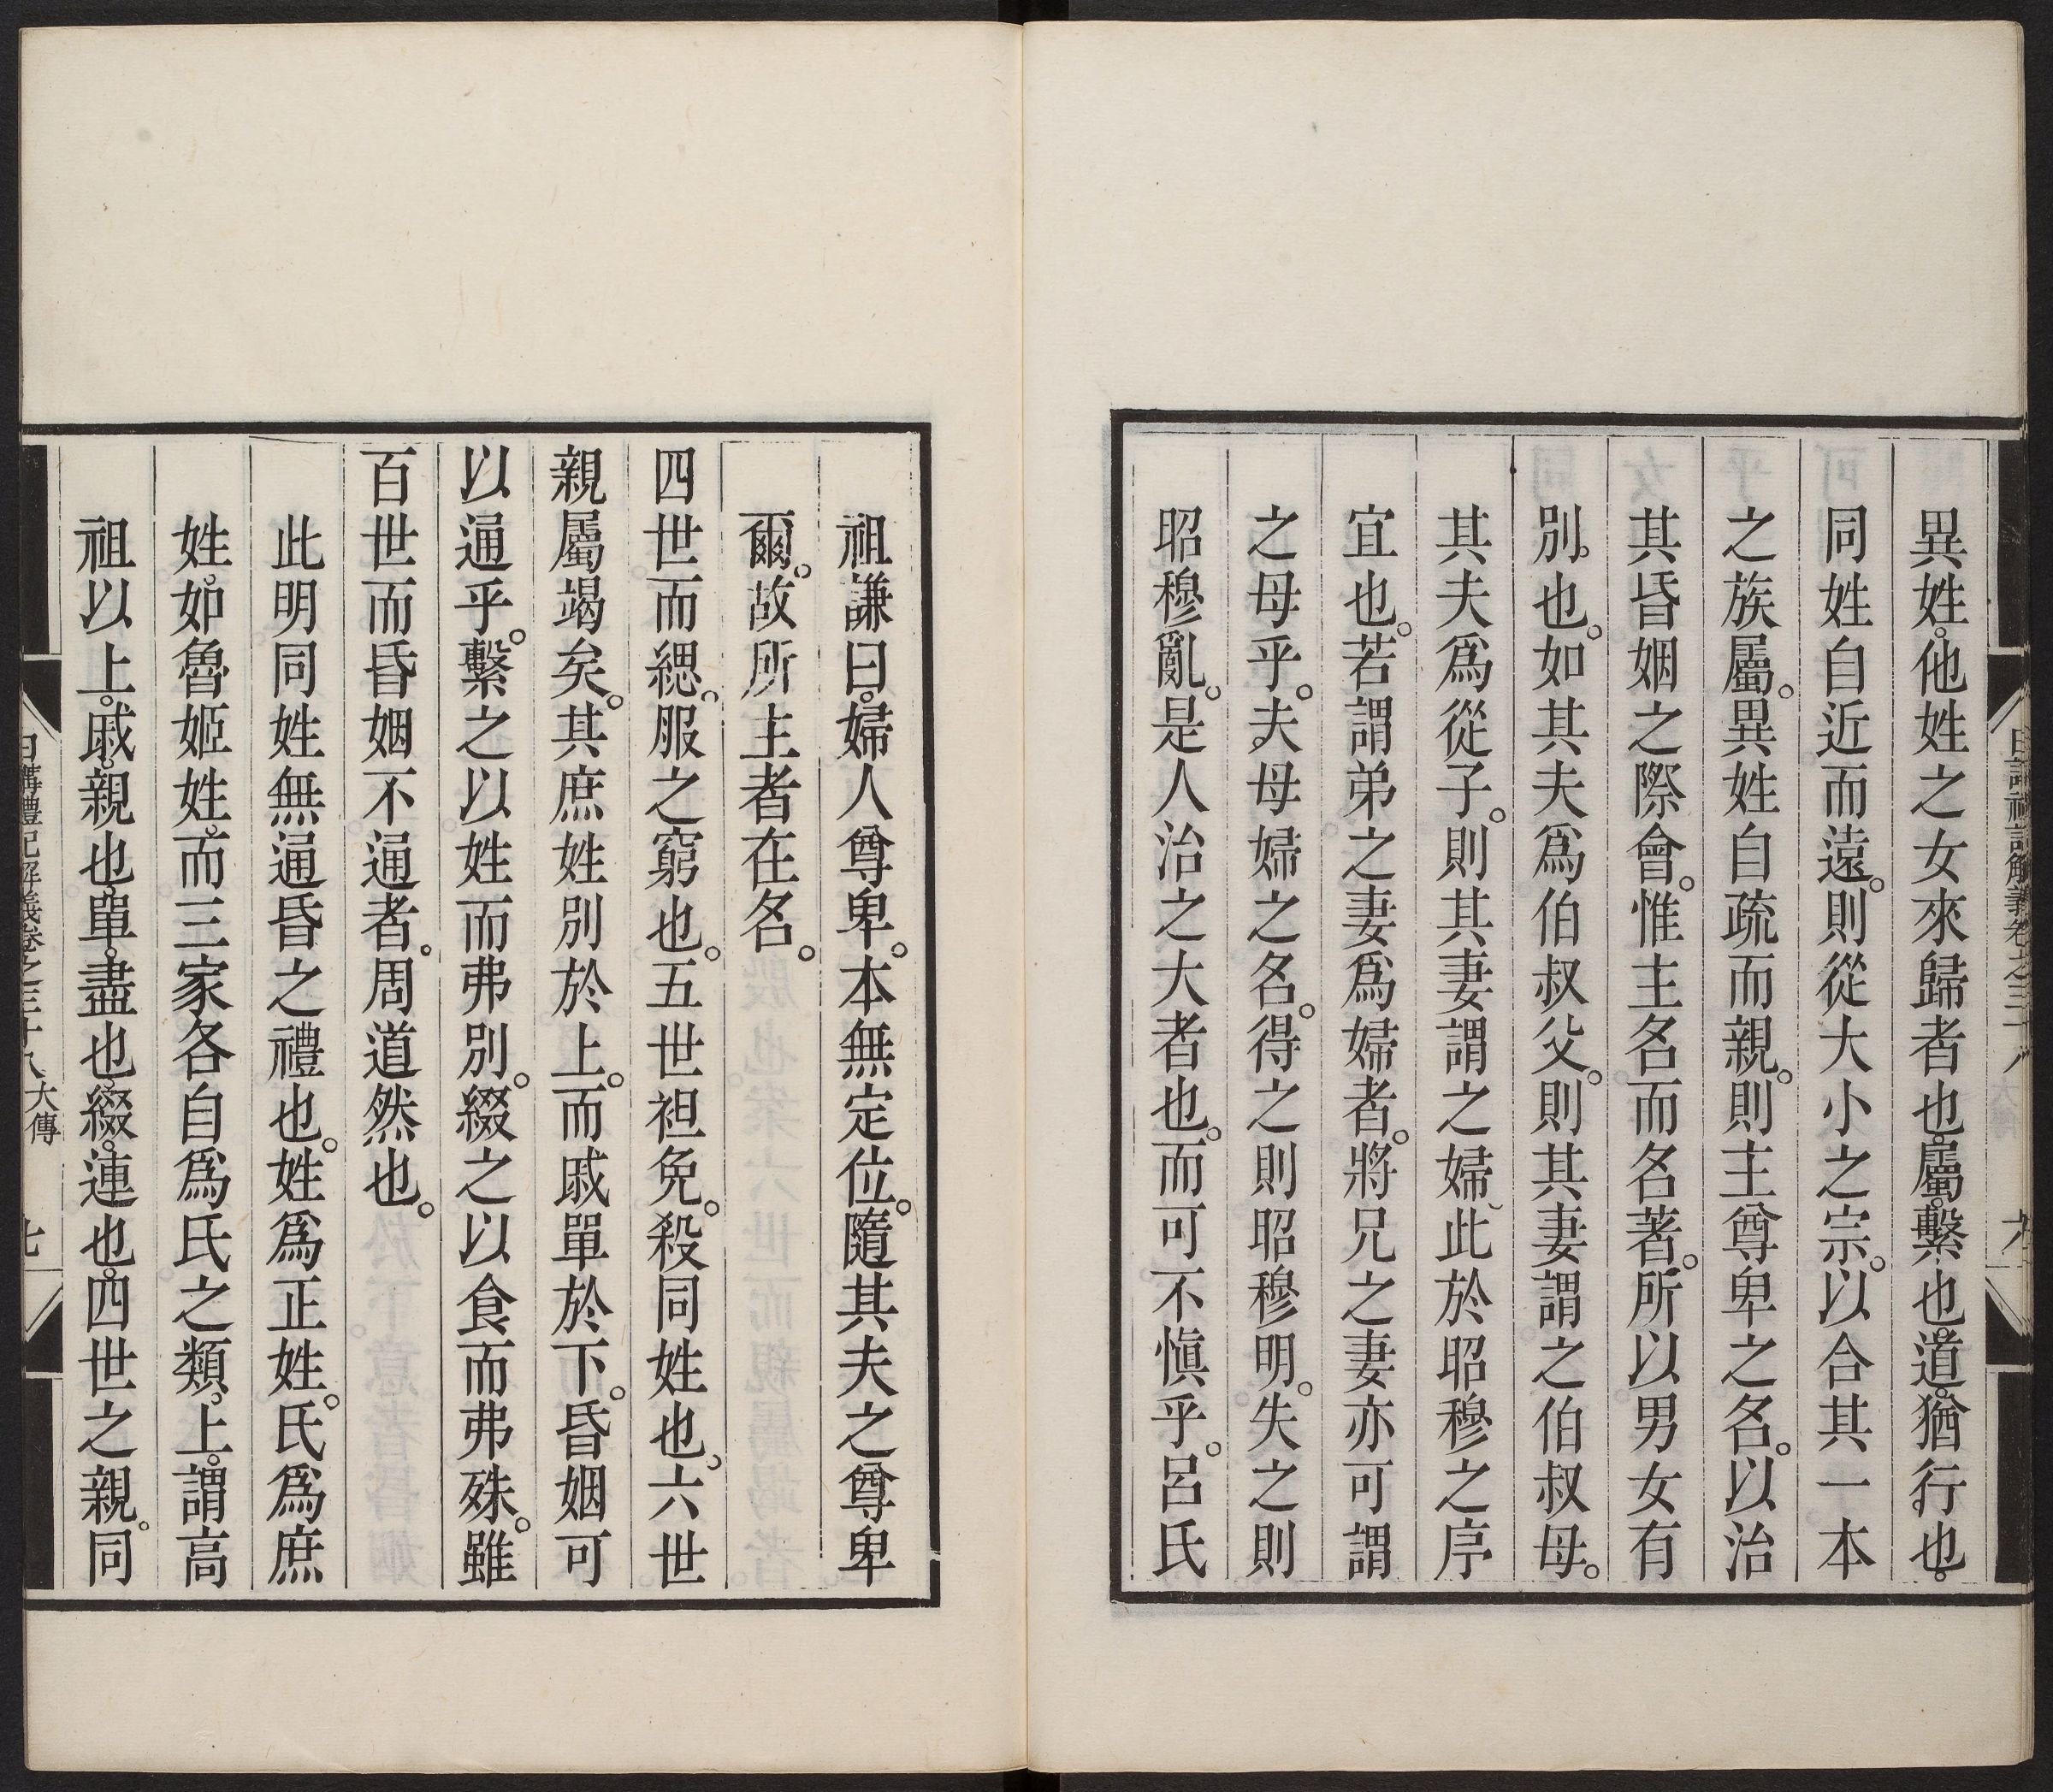 異姓。他姓之女來歸者也。屬。繫也。道。猶行也。
同姓自近而遠。則從大小之宗。以合其一本
之族屬。異姓自疏而親。則主尊卑之名。以治
其昏姻之際會。惟主名而名著。所以男女有
別也。如其夫爲伯叔父。則其妻謂之伯叔母。
其夫爲從子。則其妻謂之婦。此於昭穆之序
宜也。若謂弟之妻爲婦者。將兄之妻亦可謂
之母乎。夫母婦之名。得之則昭穆明。失之則
昭穆亂。是人治之大者也。而可不愼乎。呂氏
祖謙曰。婦人尊卑。本無定位。隨其夫之尊卑
爾。故所主者在名。
四世而緦。服之窮也。五世袒免。殺同姓也。六世
親屬竭矣。其庶姓別於上。而戚單於下。昏姻可
以通乎。繫之以姓而弗別。綴之以食而弗殊。雖
百世而昏姻不通者。周道然也。
此明同姓無通昏之禮也。姓爲正姓。氏爲庶
姓。如魯姬姓。而三家各自爲氏之類。上。謂高
祖以上。戚。親也。單。盡也。綴。連也。四世之親。同
日講禮記解義卷之三十八 大傳 七